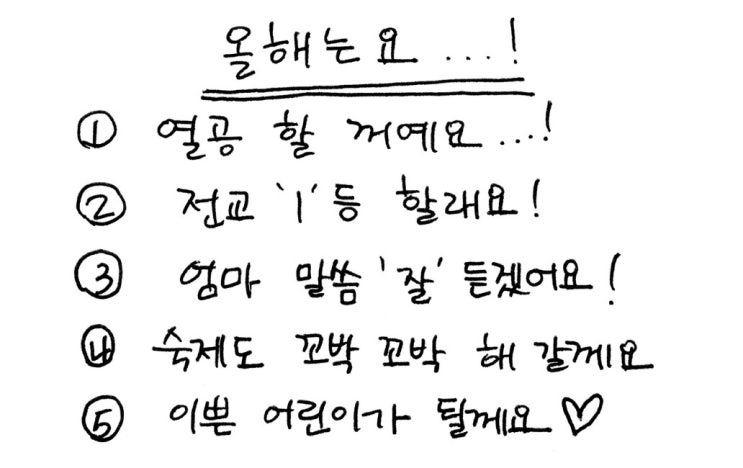 올해는요 ...!
① 열공 할 꺼예요...!
② 전교 '1' 등 할래요!
③ 엄마 말씀 '잘' 듣겠어요!
④ 숙제도 꼬박 꼬박 해 갈께요
⑤ 이쁜 어린이가 될께요♡